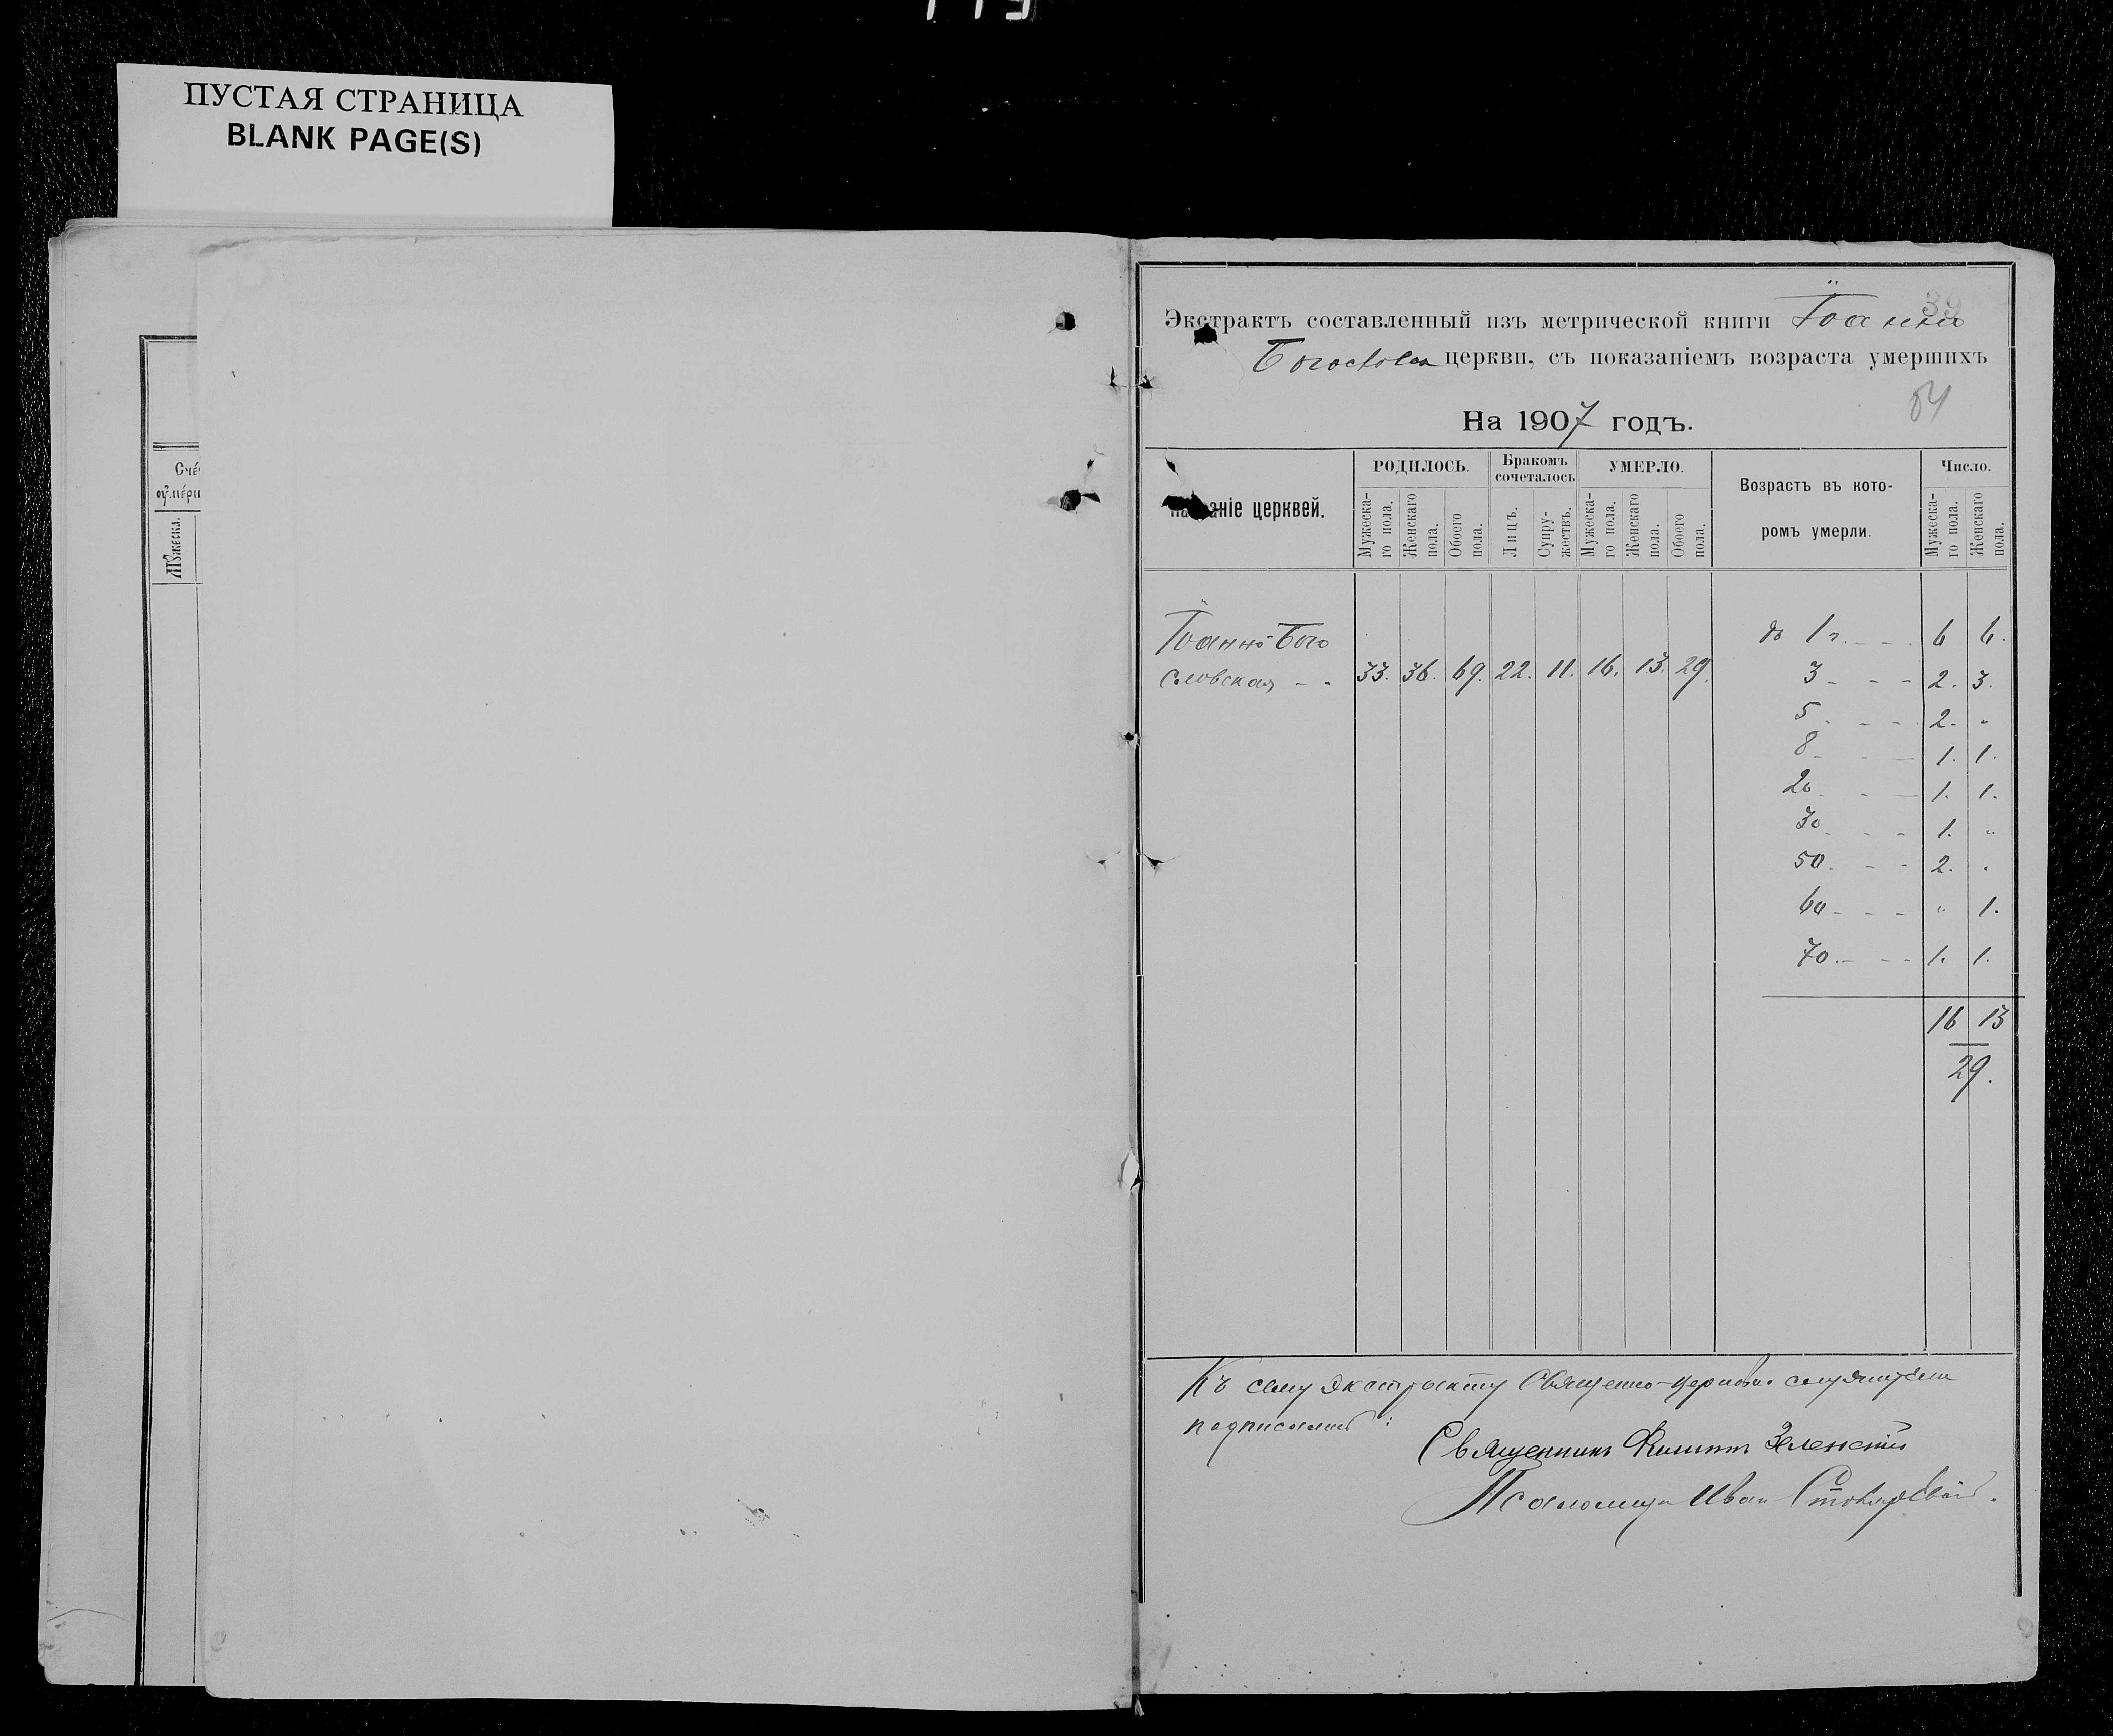 ПУСТАЯ СТРАНИЦА
BLANK PAGE(S)
Счé
оумéрш
Мꙋжеска.
Экстрактъ составленный изъ метрической книги Іоанно
Богослов церкви, съ показаніемъ возраста умершихъ
54
На 1907 годъ.
Названіе церквей.
РОДИЛОСЬ.
Бракомъ сочеталось
УМЕРЛО.
Возрастъ въ кото-
ромъ умерли.
Число.
Мужеска-
го пола.
Женскаго
пола.
Обоего
пола.
Лицъ.
Супру-
жествъ.
Мужеска-
го пола.
Женскаго
пола.
Обоего
пола.
Мужеска-
го пола.
Женскаго
пола.
Іоанно-Бого
словская - - 33. 36. 69. 22. 11. 16. 13. 29.
до 1 г. - - - 6 6.
3 - - - 2. 3.
5 - - - 2. "
8 - - - 1. 1.
20 - - - 1. 1.
30 - - - 1. "
50 - - - 2. "
60 - - - " 1.
70 - - - 1. 1.
16 13
29.
Къ сему экстракту Священно-церковно служители
подписались:
Священникъ Зеленскій
Псаломщ Иван